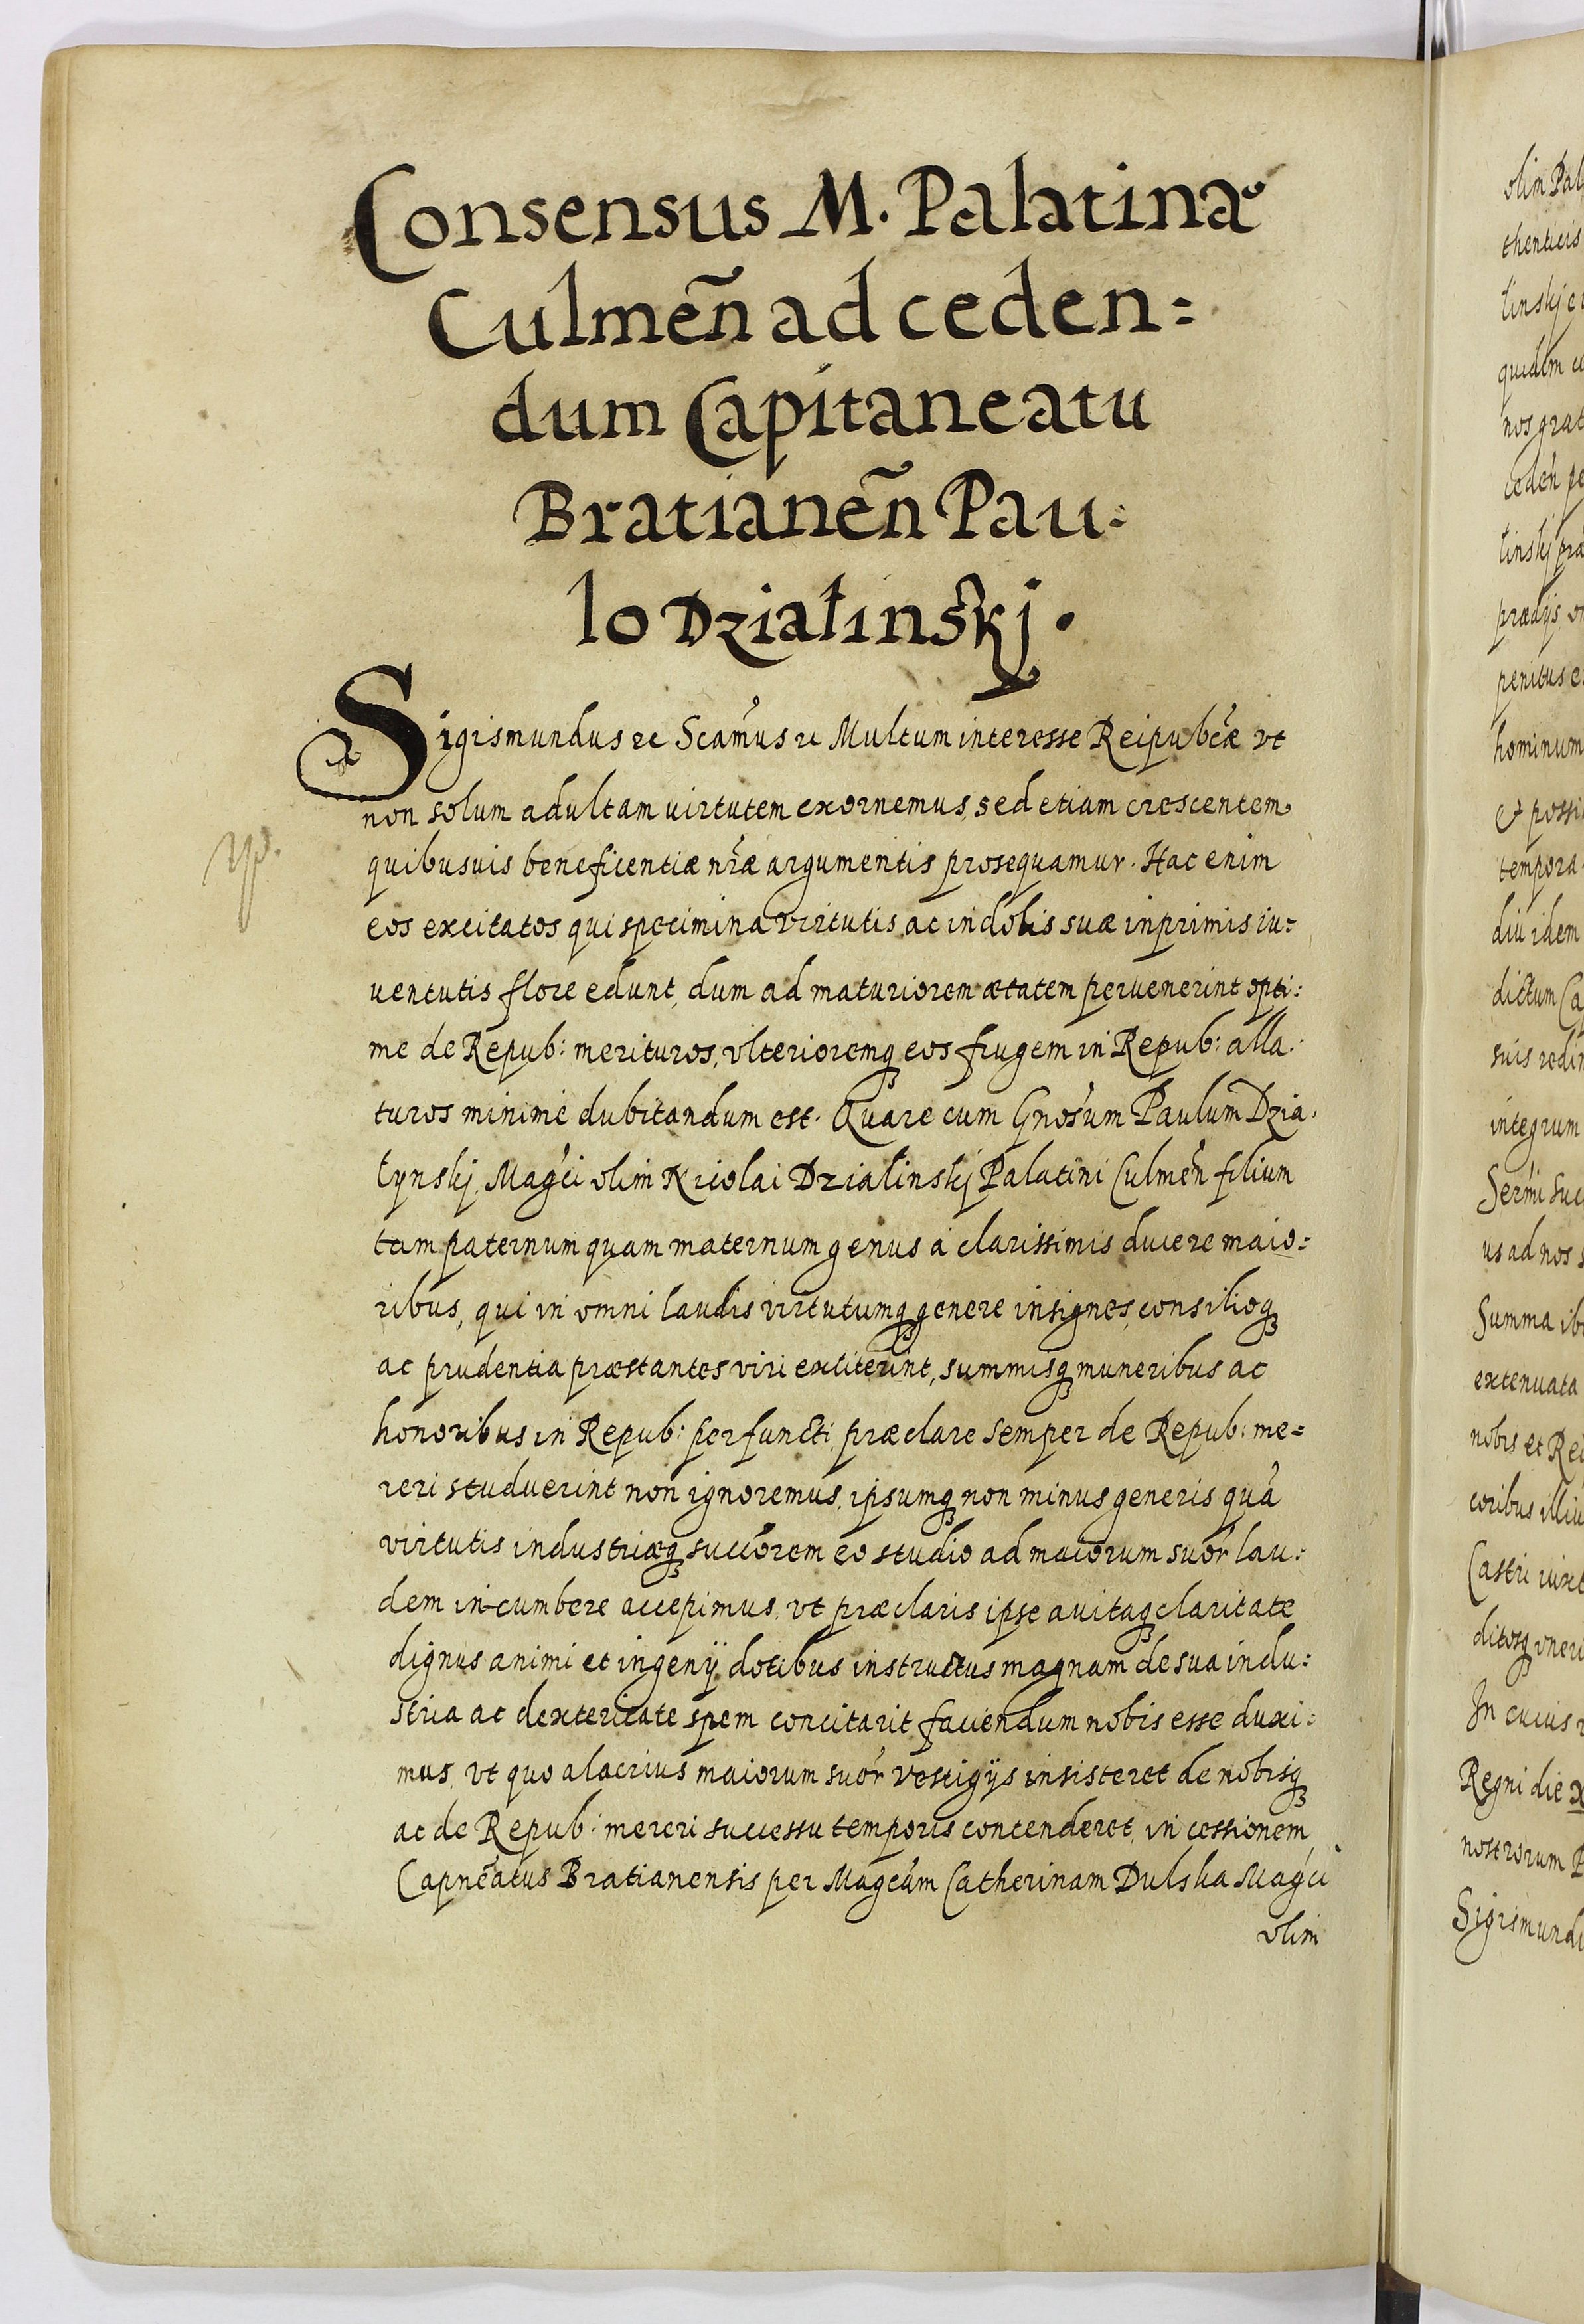 Consensus M. Palatinæ
Culmen̄ ad ceden=
dum Capitaneatu
Bratianen̄ Pau=
lo Działinskj.
Sigismundus ꝛc Scam̃us ꝛc Multum interesse Reipub̃cæ vt
non solum adultam uirtutem exornemus, sed etiam crescentem
quibusuis beneficentiæ nr̃æ argumentis prosequamur. Hac enim
eos excitatos qui specimina virtutis ac indolis suæ inprimis iu=
uentutis flore edunt, dum ad maturiorem ætatem peruenerint opti=
me de Repub: merituros, vlterioremqꝫ eos frugem in Repub: alla=
turos minimè dubitandum est. Quare cum Gnos̃um Paulum Dzia=
łynskj, Mag̃ci olim Nicolai Działinskj Palatini Culmen̄ filium
tam paternum quam maternum genus à clarissimis ducere maio=
ribus, qui in omni laudis virtutumqꝫ genere insignes, consilioqꝫ
ac prudentia præstantes viri extiterint, summisqꝫ muneribus ac
honoribus in Repub: perfuncti, præclare semper de Repub: me=
reri studuerint non ignoremus, ipsumqꝫ non minus generis quã
virtutis industriæqꝫ succ̃orem eo studio ad maiorum suor̃ lau=
dem incumbere accepimus, vt præclaris ipse auitaqꝫ claritate
dignus animi et ingenij dotibus instructus magnam de sua indu=
stria ac dexteritate spem concitarit faciendum nobis esse duxi=
mus, vt quo alacrius maiorum suor̃ vestigijs insisteret de nobisqꝫ
ac de Repub: mereri successu temporis contenderet, in cessionem
Capneãtus Bratianensis per Magcãm Catherinam Dulska Mag̃ci
olim
olim Pal
thenticis
linskj e
quidem
nos grat
ceden̄ pe
linskj præ
prædijs
penitus e
hominum
et possi
tempora
diu idem
dictum Ca
suis redi
integrum
Serm̃i suc
us ad nos
Summa ib
extenuata
nobis et Rei
coribus illiu
Castri iuxt
ditosqꝫ vneri
In cuius
Regni die
nostrorum
Sigismund